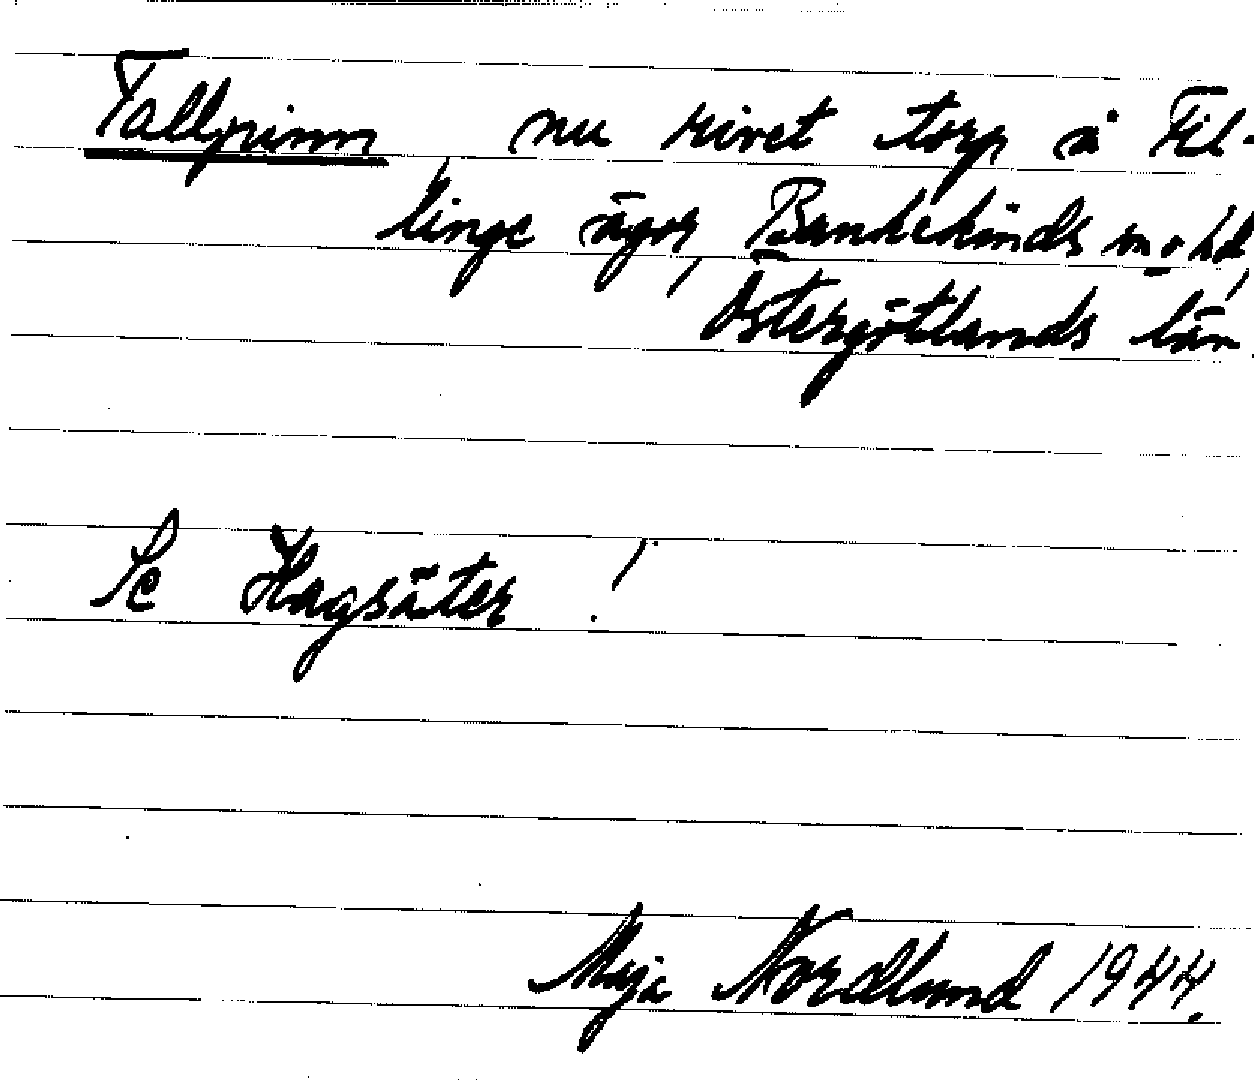 Tallpinn, nu rivet torp å Fil-
linge ägor, Bankekinds sn o hd,
Östergötlands län.
Se Hagsäter!
Maja Nordlund 1944.